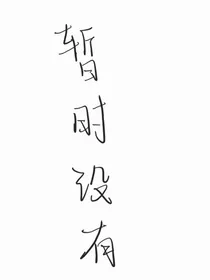 暂时没有